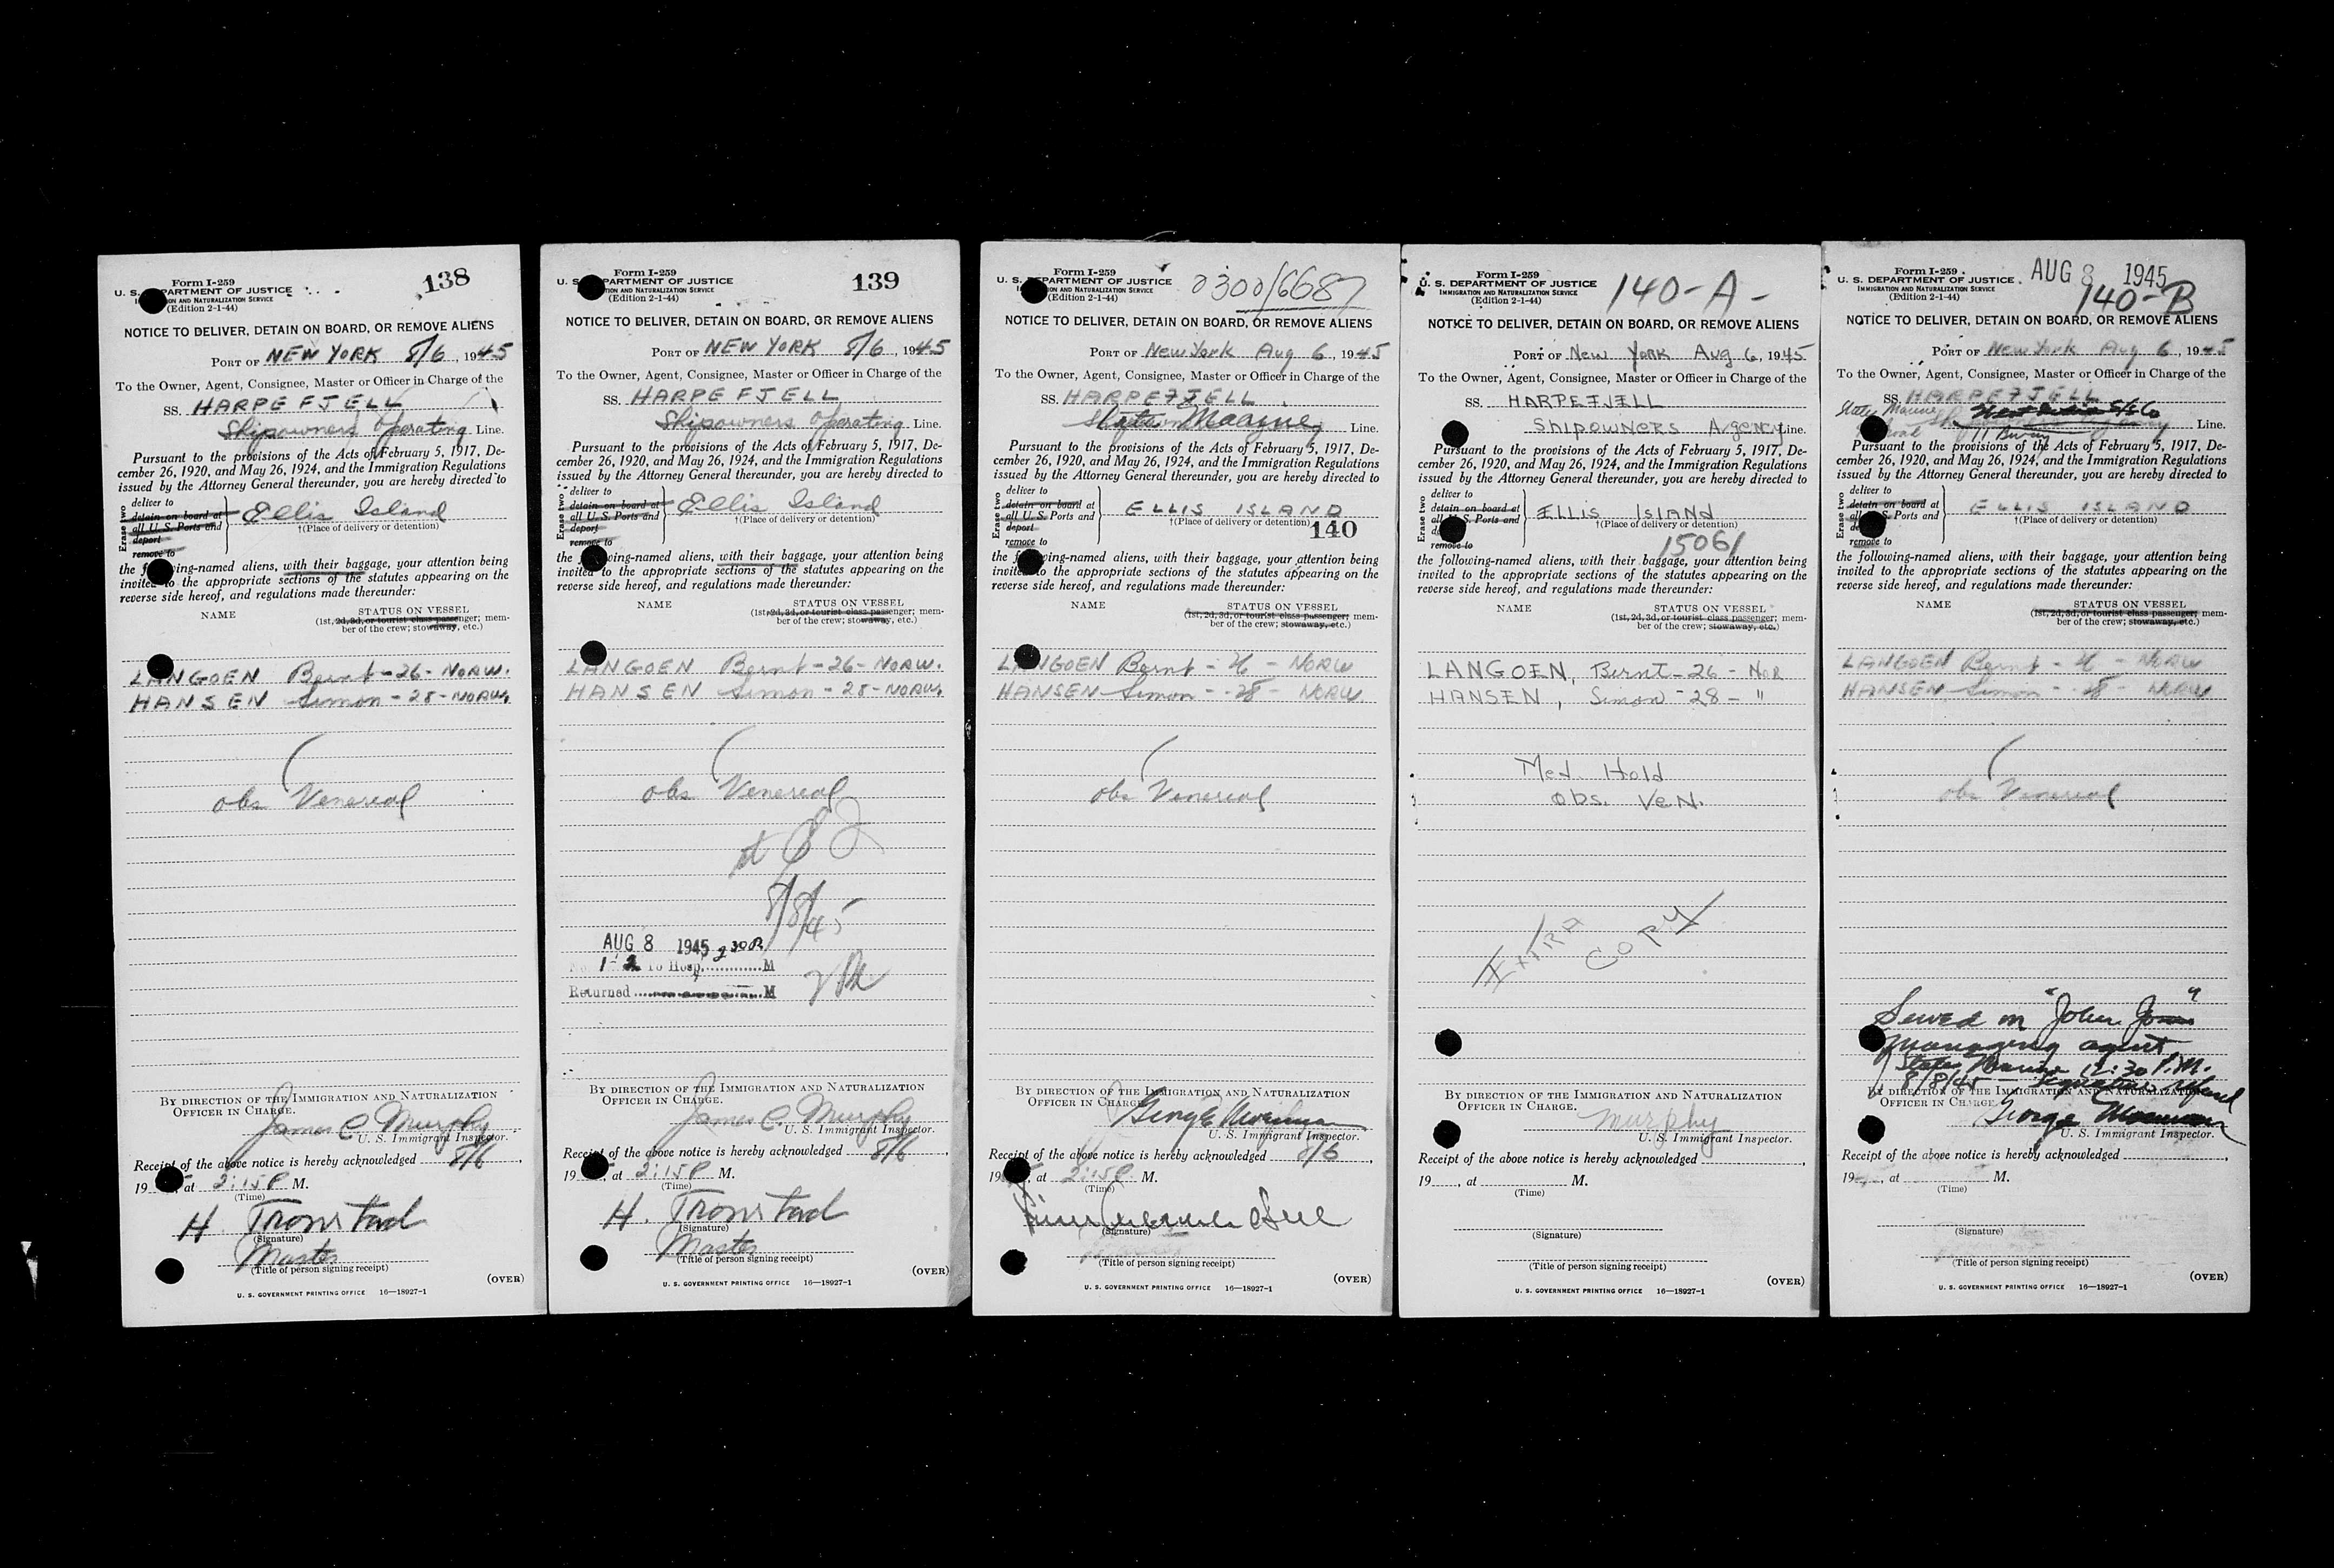 Form I-259
138
U. S. DEPARTMENT OF JUSTICE
IMMIGRATION AND NATURALIZATION SERVICE
(Edition 2-1-44)
NOTICE TO DELIVER, DETAIN ON BOARD, OR REMOVE ALIENS
PORT OF NEW YORK 8/6, 1945
To the Owner, Agent, Consignee, Master or Officer in Charge of the
SS. HARPE FJELL
Shipowners Operating Line.
Pursuant to the provisions of the Acts of February 5, 1917, De-
cember 26, 1920, and May 26, 1924, and the Immigration Regulations
issued by the Attorney General thereunder, you are hereby directed to
Erase two
deliver to
detain on board at
all U. S. Ports and
deport
remove to
Ellis Island
†(Place of delivery or detention)
the following-named aliens, with their baggage, your attention being
invited to the appropriate sections of the statutes appearing on the
reverse side hereof, and regulations made thereunder:
NAME STATUS ON VESSEL
(1st, 2d, 3d, or tourist class passenger; mem-
ber of the crew; stowaway, etc.)
LANGOEN Bernt - 26 - NORW.
HANSEN Simon - 28 - NORW.
obs Venereal
BY DIRECTION OF THE IMMIGRATION AND NATURALIZATION
OFFICER IN CHARGE.
James C Murphy
U. S. Immigrant Inspector.
Receipt of the above notice is hereby acknowledged 8/6,
19 , at 2:15 P M.
(Time)
H. Tronstad
(Signature)
Master
(Title of person signing receipt)
(OVER)
U. S. GOVERNMENT PRINTING OFFICE 16—18927-1
Form I-259
139
U. S. DEPARTMENT OF JUSTICE
IMMIGRATION AND NATURALIZATION SERVICE
(Edition 2-1-44)
NOTICE TO DELIVER, DETAIN ON BOARD, OR REMOVE ALIENS
PORT OF NEW YORK 8/6, 1945
To the Owner, Agent, Consignee, Master or Officer in Charge of the
SS. HARPE FJELL
Shipowners Operating Line.
Pursuant to the provisions of the Acts of February 5, 1917, De-
cember 26, 1920, and May 26, 1924, and the Immigration Regulations
issued by the Attorney General thereunder, you are hereby directed to
Erase two
deliver to
detain on board at
all U. S. Ports and
deport
remove to
Ellis Island
†(Place of delivery or detention)
the following-named aliens, with their baggage, your attention being
invited to the appropriate sections of the statutes appearing on the
reverse side hereof, and regulations made thereunder:
NAME STATUS ON VESSEL
(1st, 2d, 3d, or tourist class passenger; mem-
ber of the crew; stowaway, etc.)
LANGOEN Bernt - 26 - NORW.
HANSEN Simon - 28 - NORW.
obs Venereal
at E I
8/8/45
AUG 8 1945 2 30 P
No. 1-2 To Hosp. M
Returned M
BY DIRECTION OF THE IMMIGRATION AND NATURALIZATION
OFFICER IN CHARGE.
James C. Murphy
U. S. Immigrant Inspector.
Receipt of the above notice is hereby acknowledged 8/6,
19 , at 2:15 P M.
(Time)
H. Tronstad
(Signature)
Master
(Title of person signing receipt)
(OVER)
U. S. GOVERNMENT PRINTING OFFICE 16—18927-1
Form I-259
0300/6687
U. S. DEPARTMENT OF JUSTICE
IMMIGRATION AND NATURALIZATION SERVICE
(Edition 2-1-44)
NOTICE TO DELIVER, DETAIN ON BOARD, OR REMOVE ALIENS
PORT OF New York Aug 6, 1945
To the Owner, Agent, Consignee, Master or Officer in Charge of the
SS. HARPEFJELL
Line.
Pursuant to the provisions of the Acts of February 5, 1917, De-
cember 26, 1920, and May 26, 1924, and the Immigration Regulations
issued by the Attorney General thereunder, you are hereby directed to
Erase two
deliver to
detain on board at
all U. S. Ports and
deport
remove to
ELLIS ISLAND
†(Place of delivery or detention)
140
the following-named aliens, with their baggage, your attention being
invited to the appropriate sections of the statutes appearing on the
reverse side hereof, and regulations made thereunder:
NAME STATUS ON VESSEL
(1st, 2d, 3d, or tourist class passenger; mem-
ber of the crew; stowaway, etc.)
LANGOEN Bernt - 26 - NORW
HANSEN Simon - 28 - NORW.
obs Venereal
BY DIRECTION OF THE IMMIGRATION AND NATURALIZATION
OFFICER IN CHARGE.
U. S. Immigrant Inspector.
Receipt of the above notice is hereby acknowledged 8/6,
19 , at 2:15 P M.
(Time)
(Signature)
(Title of person signing receipt)
(OVER)
U. S. GOVERNMENT PRINTING OFFICE 16—18927-1
Form I-259
140-A-
U. S. DEPARTMENT OF JUSTICE
IMMIGRATION AND NATURALIZATION SERVICE
(Edition 2-1-44)
NOTICE TO DELIVER, DETAIN ON BOARD, OR REMOVE ALIENS
PORT OF New York Aug 6, 1945
To the Owner, Agent, Consignee, Master or Officer in Charge of the
SS. HARPEFJELL
Shipowners Agency Line.
Pursuant to the provisions of the Acts of February 5, 1917, De-
cember 26, 1920, and May 26, 1924, and the Immigration Regulations
issued by the Attorney General thereunder, you are hereby directed to
Erase two
deliver to
detain on board at
all U. S. Ports and
deport
remove to
ELLIS ISLAND
†(Place of delivery or detention)
15061
the following-named aliens, with their baggage, your attention being
invited to the appropriate sections of the statutes appearing on the
reverse side hereof, and regulations made thereunder:
NAME STATUS ON VESSEL
(1st, 2d, 3d, or tourist class passenger; mem-
ber of the crew; stowaway, etc.)
LANGOEN, Bernt - 26 - NOR
HANSEN, Simon - 28 - "
Med. Hold
Obs. VeN.
EXTRA COPY
BY DIRECTION OF THE IMMIGRATION AND NATURALIZATION
OFFICER IN CHARGE.
Murphy
U. S. Immigrant Inspector.
Receipt of the above notice is hereby acknowledged ,
19 , at M.
(Time)
(Signature)
(Title of person signing receipt)
(OVER)
U. S. GOVERNMENT PRINTING OFFICE 16—18927-1
Form I-259
AUG 8 1945
U. S. DEPARTMENT OF JUSTICE
140-B
IMMIGRATION AND NATURALIZATION SERVICE
(Edition 2-1-44)
NOTICE TO DELIVER, DETAIN ON BOARD, OR REMOVE ALIENS
PORT OF New York Aug 6, 1945
To the Owner, Agent, Consignee, Master or Officer in Charge of the
SS. HARPEFJELL
States Marine
Line.
Pursuant to the provisions of the Acts of February 5, 1917, De-
cember 26, 1920, and May 26, 1924, and the Immigration Regulations
issued by the Attorney General thereunder, you are hereby directed to
Erase two
deliver to
detain on board at
all U. S. Ports and
deport
remove to
ELLIS ISLAND
†(Place of delivery or detention)
the following-named aliens, with their baggage, your attention being
invited to the appropriate sections of the statutes appearing on the
reverse side hereof, and regulations made thereunder:
NAME STATUS ON VESSEL
(1st, 2d, 3d, or tourist class passenger; mem-
ber of the crew; stowaway, etc.)
LANGOEN Bernt - 26 - NORW
HANSEN Simon - 28 - NORW
obs Venereal
Served on "John
managing agent
States Marine 12:30 P.M.
8/8/45 - Signature refused
BY DIRECTION OF THE IMMIGRATION AND NATURALIZATION
OFFICER IN CHARGE.
George
U. S. Immigrant Inspector.
Receipt of the above notice is hereby acknowledged ,
19 , at M.
(Time)
(Signature)
(Title of person signing receipt)
(OVER)
U. S. GOVERNMENT PRINTING OFFICE 16—18927-1